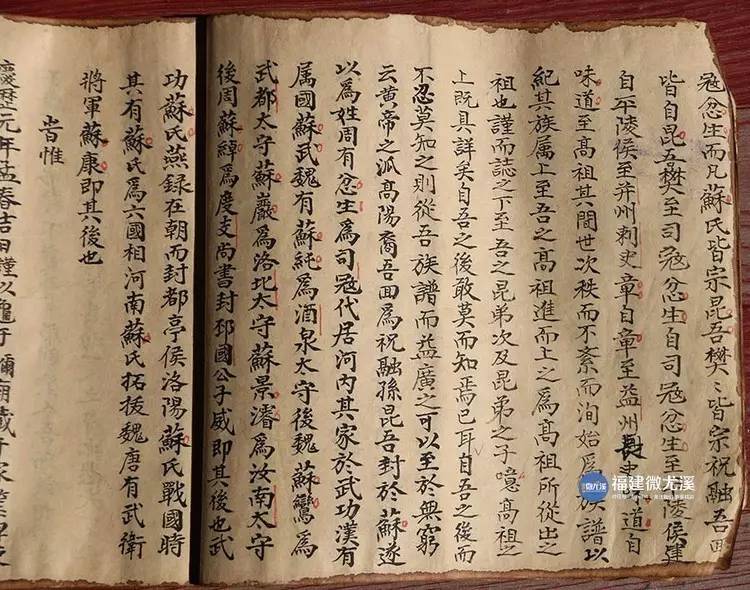 冦忿生而凡蘇氏皆宗昆吾樊〻皆宗祝融吾囬
皆自昆吾樊至司冦忿生自司冦忿生至平陵侯建
自平陵侯至并州刺史章自章至益州長史味道自
味道至髙祖其間世次秩而不紊而洵始為族譜以
紀其族属上至吾之髙祖進而上之為髙祖所從出之
祖也謹而誌之下至吾之昆弟次及昆弟之子噫髙祖之
上既具詳矣自吾之後敢莫而知焉已耳自吾之後而
不忍莫知之則從吾族譜而益廣之可以至於無窮
云黄帝之派髙陽裔吾囬為祝融孫昆吾封於蘇遂
以為姓周有忿生為司冦代居河内其家於武功漢有
属國蘇武魏有蘇純為酒泉太守後魏蘇鸞為
武都太守蘇巖為洛北太守蘇景濬為汝南太守
後周蘇綽為度支尚書封邳國公子威即其後也武
功蘇氏燕録在朝而封都亭侯洛陽蘇氏戰國時
其有蘇氏為六國相河南蘇氏拓拔魏唐有武衛
將軍蘇康即其後也
旹惟
慶歷元年孟春吉日謹以
福建微尤溪